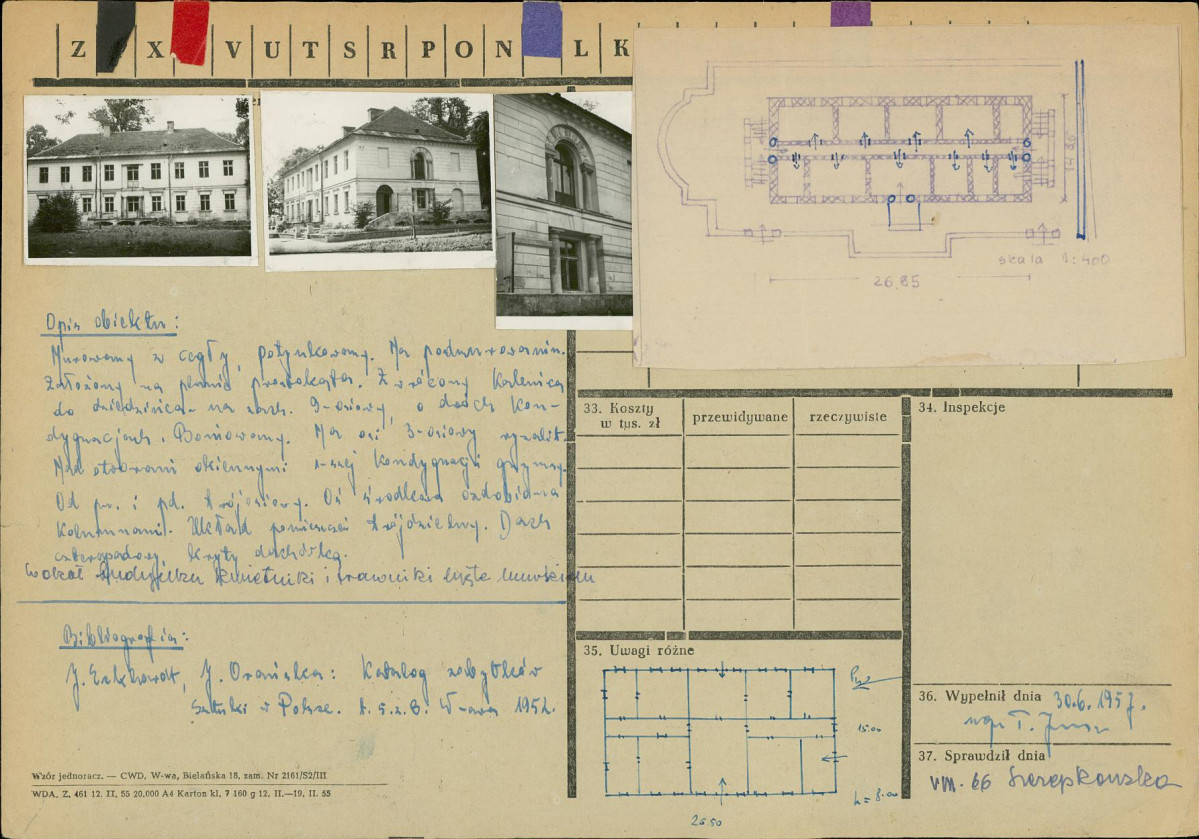 Z X V U T S R P O N L K
21
skala 1:400
26,85
14,80
Opis obiektu:
Murowany z cegły, potynkowany. Ma podmurowanie.
Założony na planie prostokąta. Zwrócony kalenicą
do dziedzińca na zach. 9-osiowy, o dwóch kon-
dygnacjach. Boniowany. Na osi 3-osiowy ryzalit.
Nad otworami okiennymi kondygnacji gzymsy.
Od pn. i pd. trójosiowy. Oś środkowa ozdobiona
kolumnami. Układ pomieszczeń trójdzielny. Dach
czterospadowy, kryty dachówką.
wokół budynku kwietniki i trawniki
Bibliografia:
J. Eckhardt, J. Orańska: Katalog zabytków
Sztuki w Polsce. W-awa 1952.
Wzór jednoracz. — CWD, W-wa, Bielańska 18, zam. Nr 2161/52/III
WDA. Z. 461 12. II. 55 20.000 A4 Karton kl. 7 160 g 12. II.—19. II. 55
33. Koszty
w tys. zł
przewidywane
rzeczywiste
34. Inspekcje
35. Uwagi różne
15.00
h = 8.00
26.50
36. Wypełnił dnia 30.6.1957.
mgr T.
37. Sprawdził dnia
VIII. 66 Szczepkowska